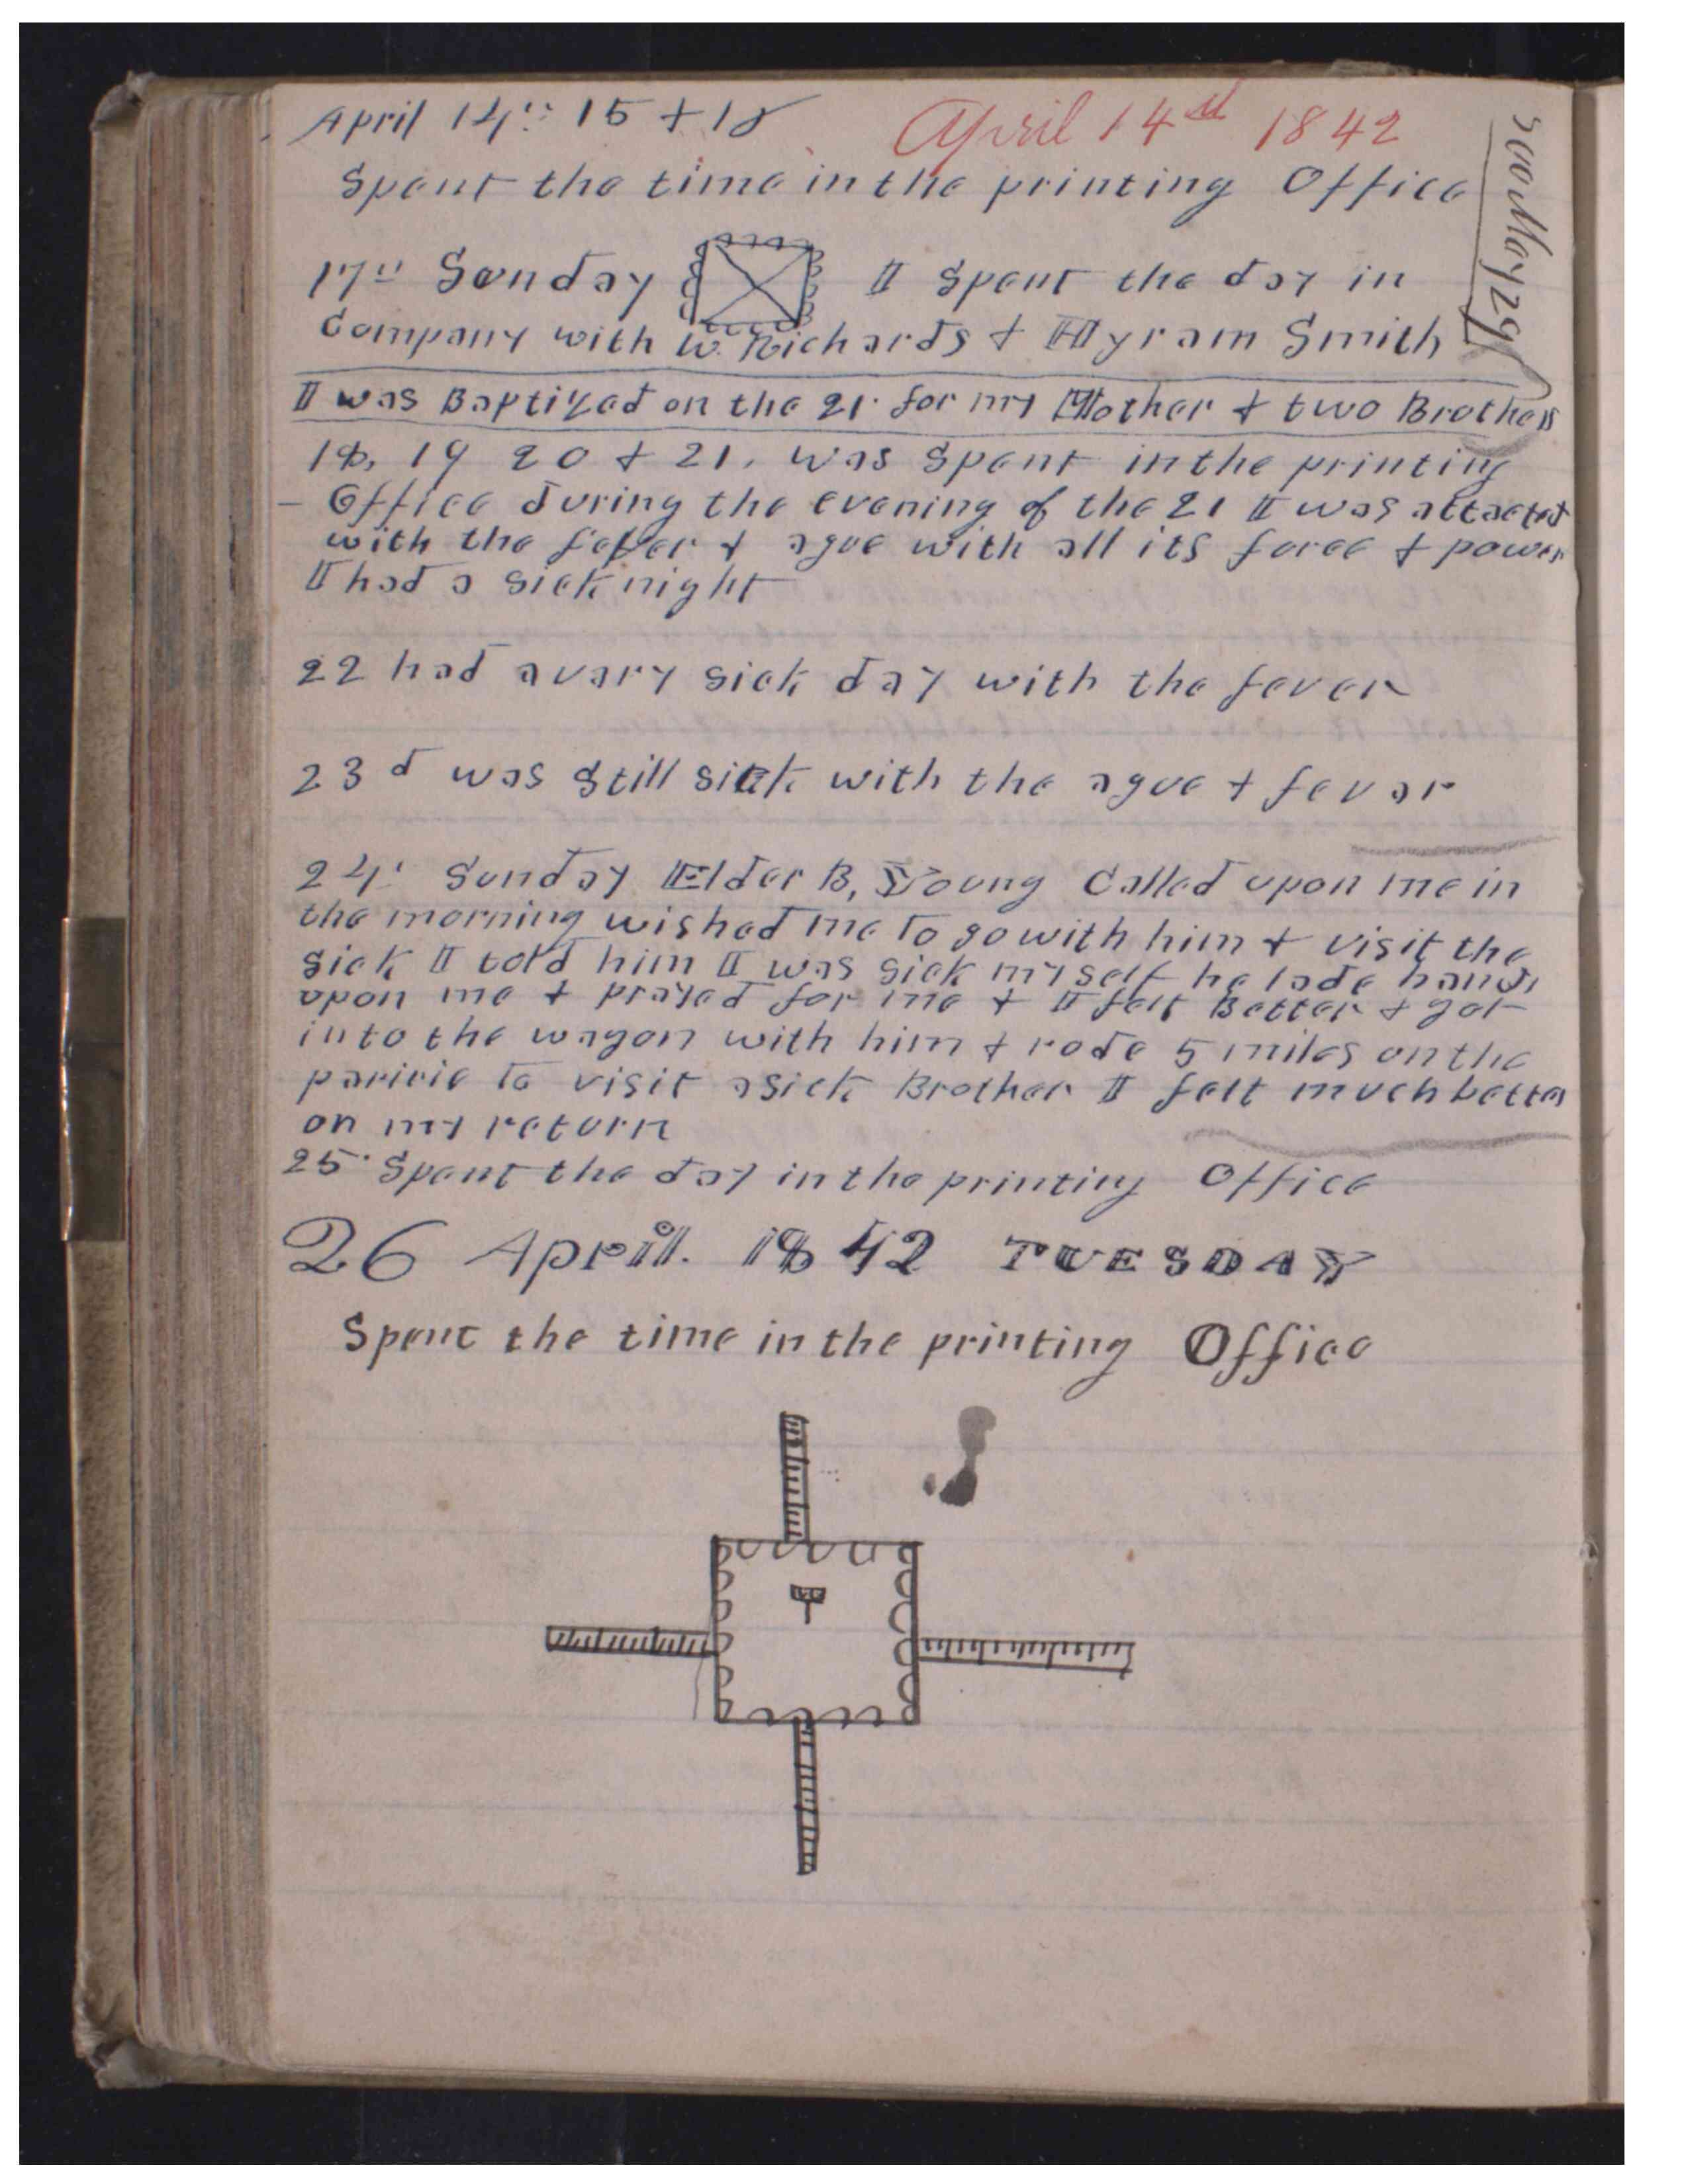 April 14th 15 + 18
April 14th 1842
Spent the time in the printing Office
17th Sunday I Spent the day in
Company with W. Richards + Hyram Smith
I was Baptized on the 21. for my Mother + two Brothers
18, 19 20 + 21. was Spent in the printing
- Office during the evening of the 21 I was attacted
with the fever + ague with all its force + power
I had a sick night
22 had a very sick day with the fever
23d was still sick with the ague + fever
24. Sunday Elder B, Young Called upon me in
the morning wished me to go with him + visit the
sick I told him I was sick myself he lade hands
upon me + prayed for me + I felt Better + got
into the wagon with him + rode 5 miles on the
paririe to visit a sick Brother I felt much better
on my return
25. Spent the day in the printing Office
26 April. 1842 TUESDAY
Spent the time in the printing Office